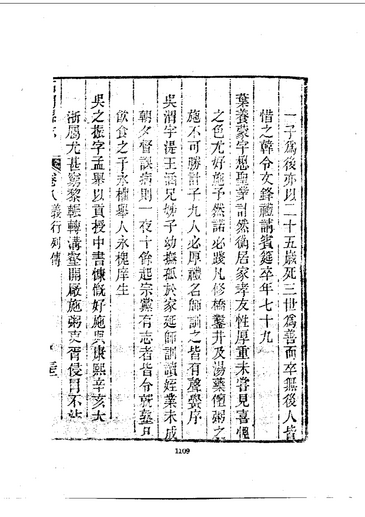 一子爲後亦以二十五歲死三世爲善而卒無後人皆
惜之韓令文鋒禮請賓筵卒年七十九
葉養蒙字想聖茅計然從居家孝友性厚重未嘗見喜慍
之色尤好施予然諾必踐凡修橋鑿井及湯藥僵粥之
施不可勝計子九人必厚禮名師誨之皆有聲黌序
吳渭字湜王涵兄妙子幼撫孤於家延師訓讀經業未成
朝夕督誤病則一夜十餘起宗黨有志者皆令就塾且
飲食之子永權舉人永槐庠生
吳之振字孟舉以貢授中書慷慨好施與康熙辛亥大
浙屬尤甚窮黎輾轉溝壑開厰施粥吏胥侵冒不沾
卷八義行列傳
1109